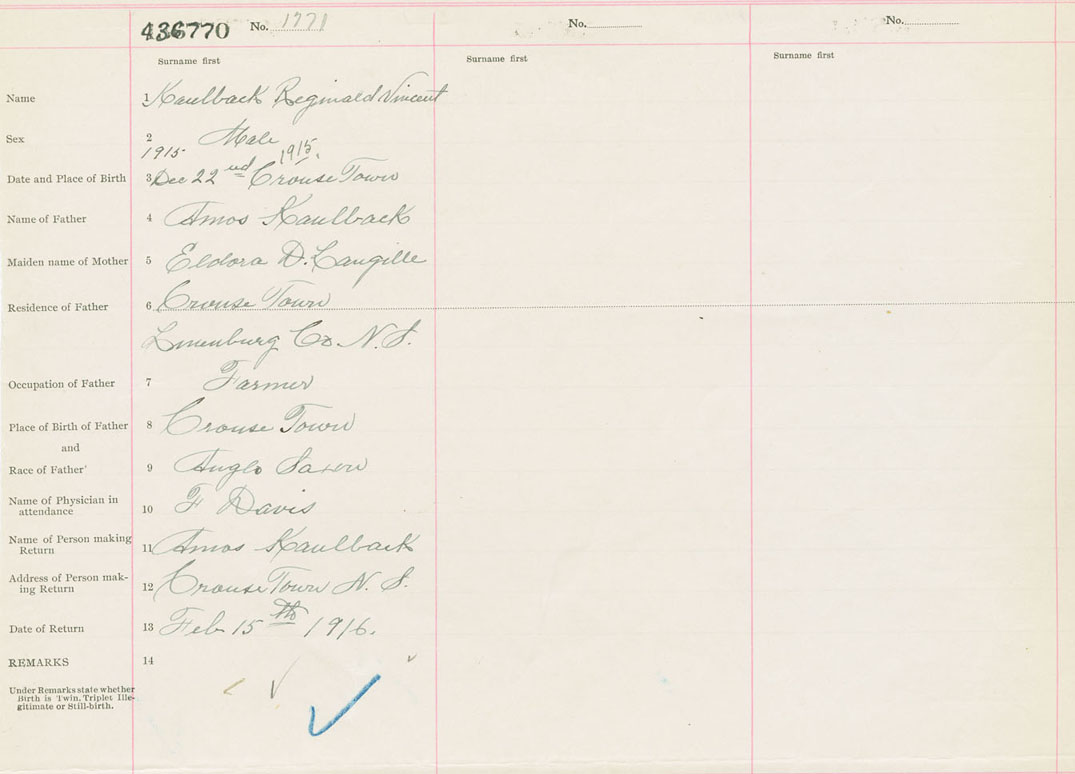 436770 No. 1771 No. No.
Surname first Surname first Surname first
Name 1 Kaulback Reginald Vincent
Sex 2 Male
1915 1915.
Date and Place of Birth 3 Dec 22nd Crouse Town
Name of Father 4 Amos Kaulback
Maiden name of Mother 5 Eldora D. Langille
Residence of Father 6 Crouse Town
Lunenburg Co. N. S.
Occupation of Father 7 Farmer
Place of Birth of Father 8 Crouse Town
and
Race of Father 9 Anglo Saxon
Name of Physician in
attendance 10 F Davis
Name of Person making
Return 11 Amos Kaulback
Address of Person mak-
ing Return 12 Crouse Town N. S.
Date of Return 13 Feb 15th 1916.
REMARKS 14
Under Remarks state whether
Birth is Twin, Triplet Ille-
gitimate or Still-birth.